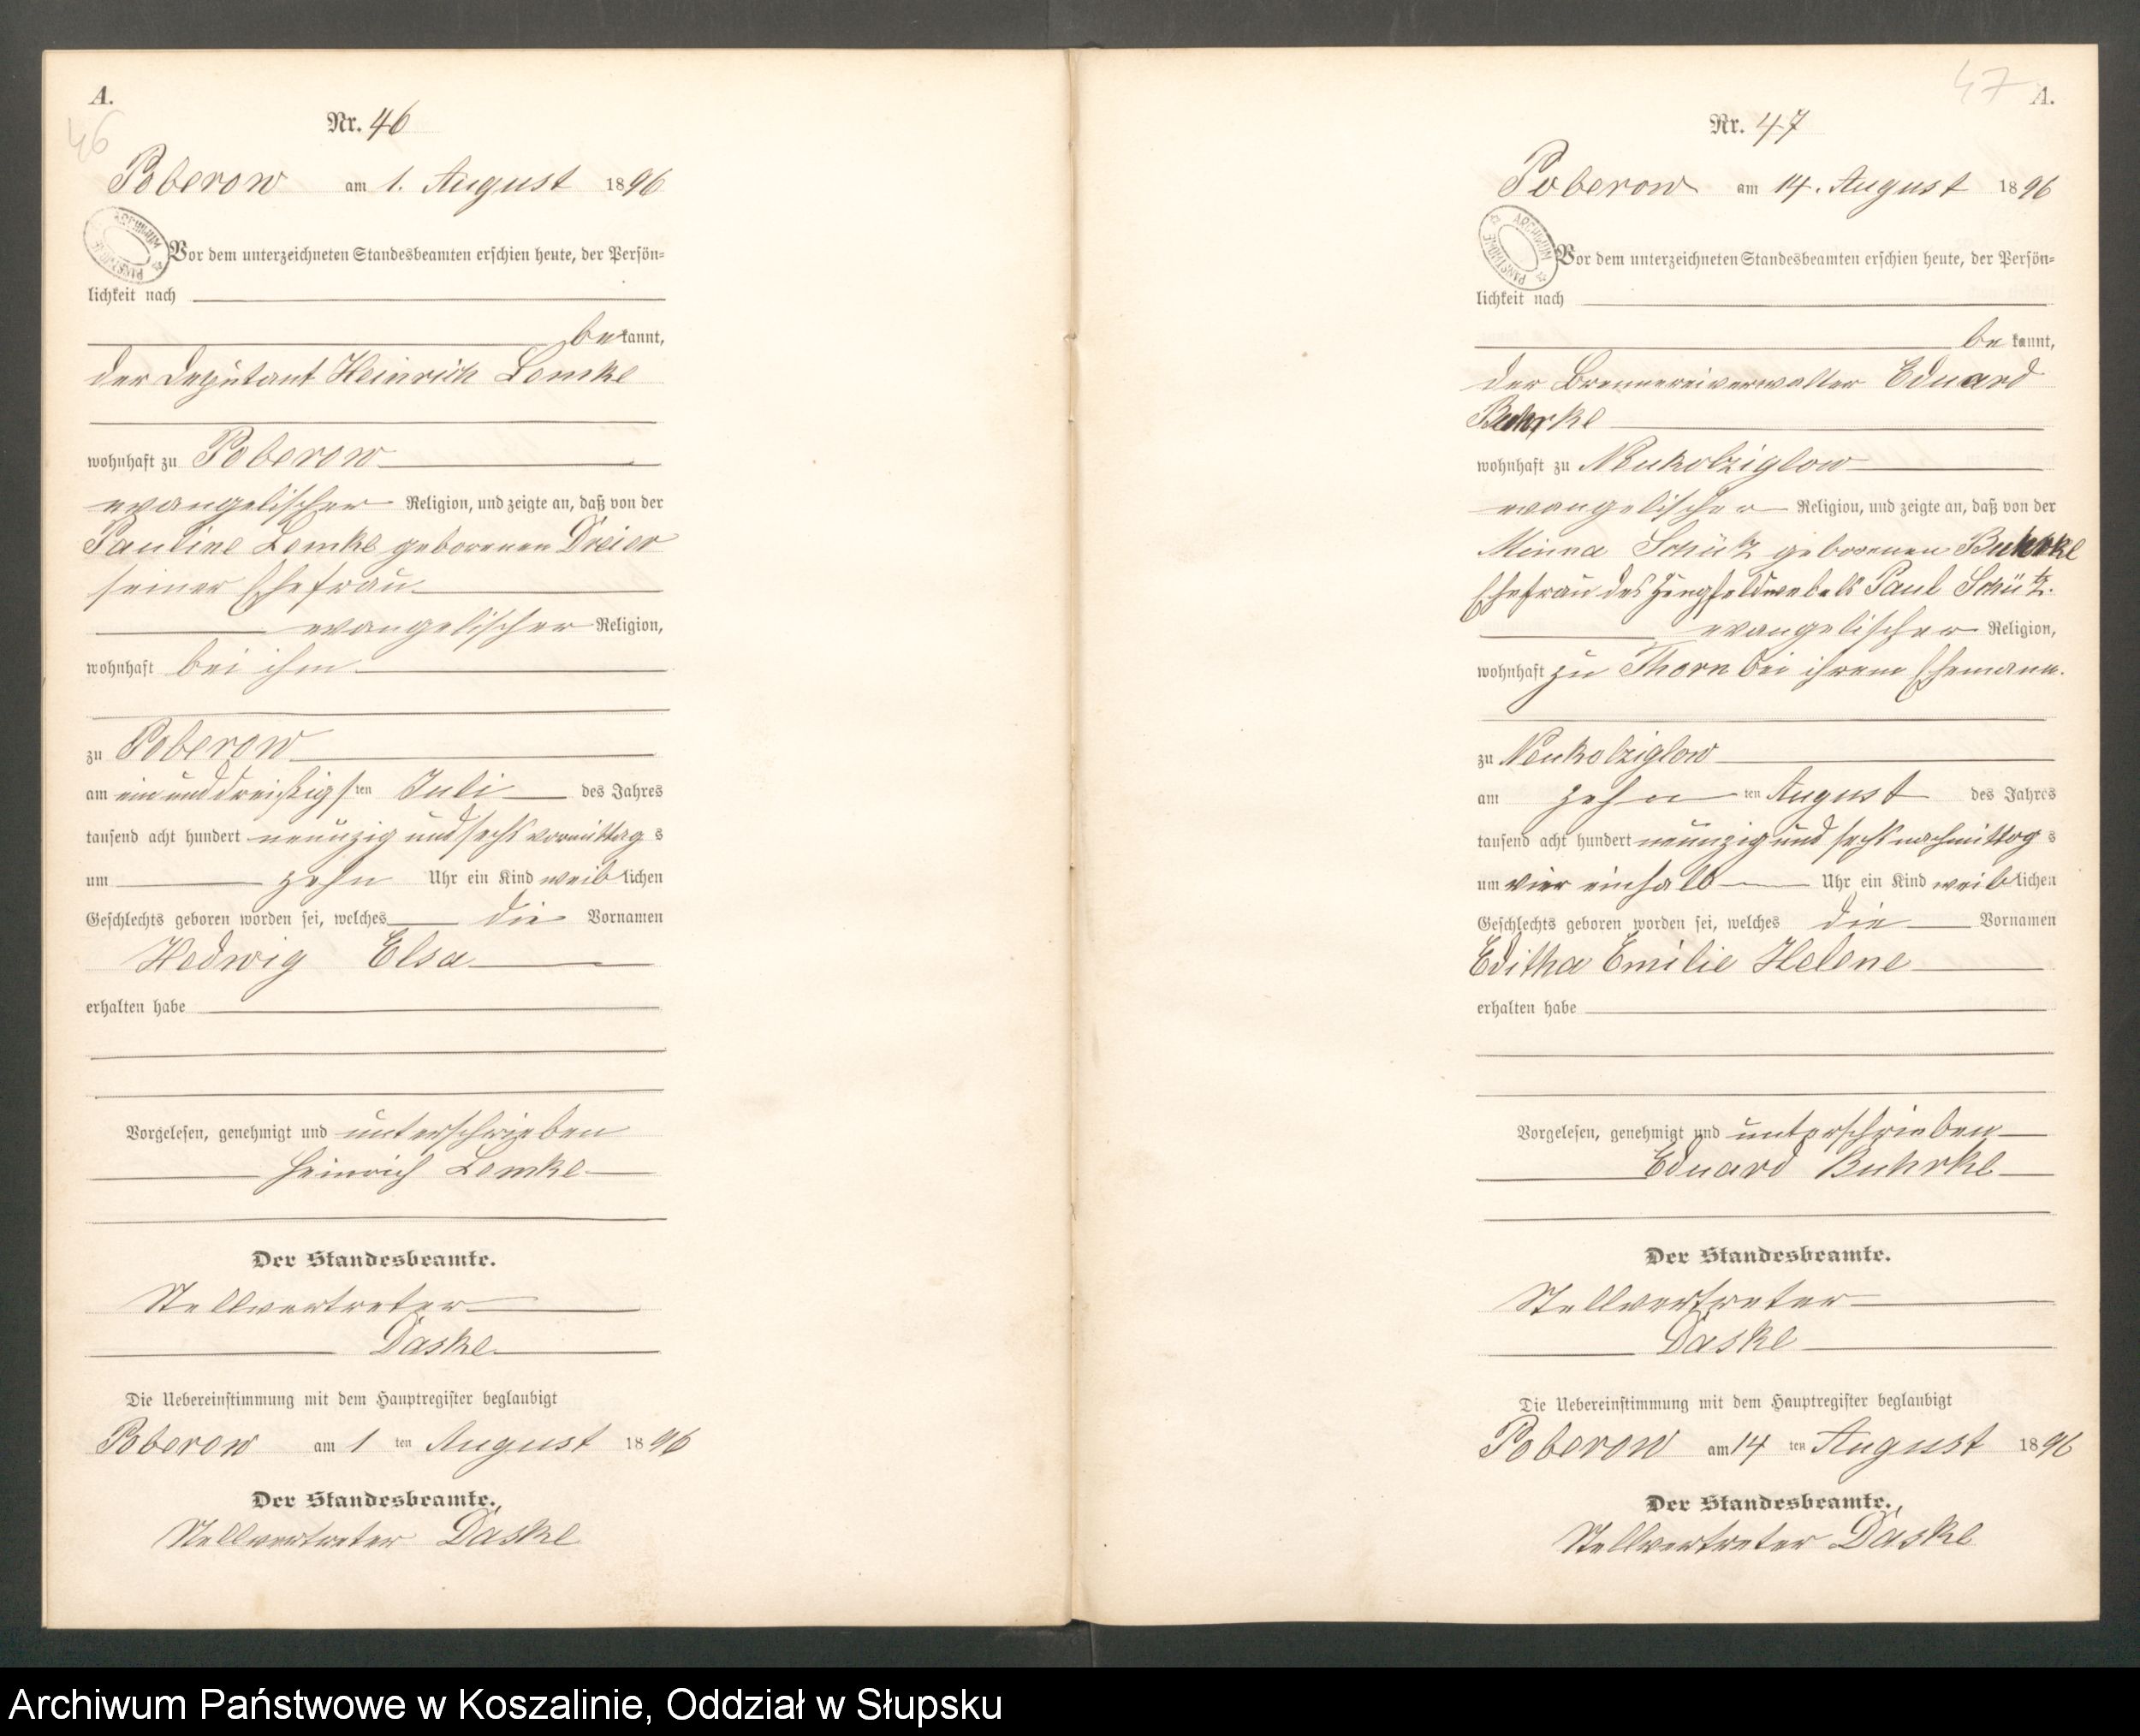 A.
46
Nr. 46
Poberow am 1. August 1896
ARCHIWUM PAŃSTWOWE
Vor dem unterzeichneten Standesbeamten erschien heute, der Persön=
lichkeit nach
bekannt,
der Deputant Heinrich Lemke
wohnhaft zu Poberow
evangelischer Religion, und zeigte an, daß von der
Pauline Lemke geborenen Dreier
seiner Ehefrau
evangelischer Religion,
wohnhaft bei ihm
zu Poberow
am ein und dreißigsten Juli des Jahres
tausend acht hundert neunzig und sechs vormittags
um zehn Uhr ein Kind weiblichen
Geschlechts geboren worden sei, welches die Vornamen
Hedwig Elsa
erhalten habe
Vorgelesen, genehmigt und unterschrieben
Heinrich Lemke
Der Standesbeamte.
Stellvertreter
Daske
Die Uebereinstimmung mit dem Hauptregister beglaubigt
Poberow am 1 ten August 1896
Der Standesbeamte.
Stellvertreter Daske
47
A.
Nr. 47
Poberow am 14. August 1896
ARCHIWUM PAŃSTWOWE
Vor dem unterzeichneten Standesbeamten erschien heute, der Persön=
lichkeit nach
bekannt,
der Brennereiverwalter Eduard
Buhrke
wohnhaft zu Neukolziglow
evangelischer Religion, und zeigte an, daß von der
Minna Schütz geborenen Buhrke
Ehefrau des Paul Schütz.
evangelischer Religion,
wohnhaft zu Thorn bei ihrem Ehemann.
zu Neukolziglow
am zehn ten August des Jahres
tausend acht hundert neunzig und sechs nachmittags
um vier einhalb Uhr ein Kind weiblichen
Geschlechts geboren worden sei, welches die Vornamen
Editha Emilie Helene
erhalten habe
Vorgelesen, genehmigt und unterschrieben
Eduard Buhrke
Der Standesbeamte.
Stellvertreter
Daske
Die Uebereinstimmung mit dem Hauptregister beglaubigt
Poberow am 14 ten August 1896
Der Standesbeamte.
Stellvertreter Daske
Archiwum Państwowe w Koszalinie, Oddział w Słupsku